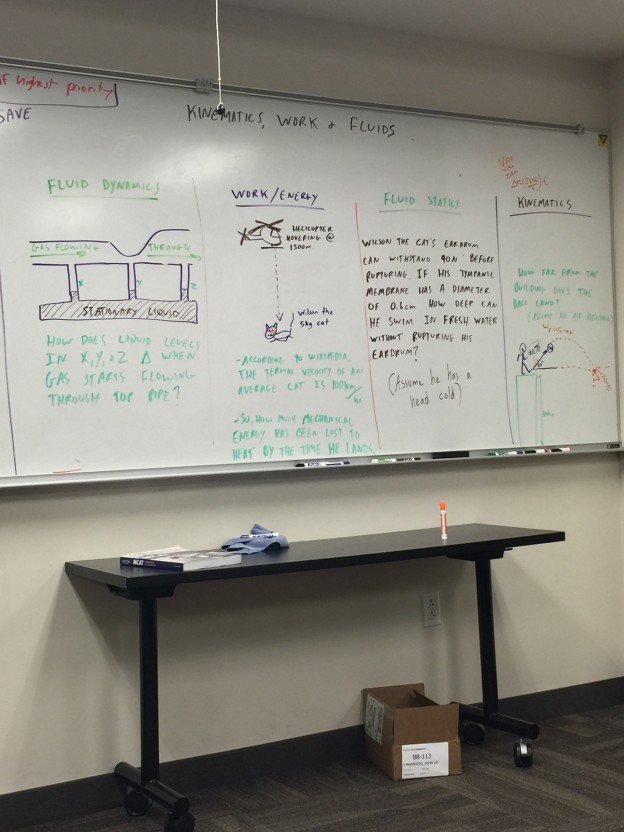 highest priority
SAVE
KINEMATICS, WORK + FLUIDS
FLUID DYNAMICS
GAS FLOWING THROUGH
X Y Z
STATIONARY LIQUID
HOW DOES LIQUID LEVELS
IN X, Y, + Z Δ WHEN
GAS STARTS FLOWING
THROUGH TOP PIPE?
WORK/ENERGY
HELICOPTER
HOVERING @
1500m
Wilson the
sky cat
-ACCORDING TO WIKIPEDIA,
THE TERMAL VELOCITY OF AN
AVERAGE CAT IS 100km/hr
-SO, HOW MUCH MECHANICAL
ENERGY HAS BEEN LOST TO
HEAT BY THE TIME HE LANDS
FLUID STATICS
WILSON THE CAT'S EARDRUM
CAN WITHSTAND 90N BEFORE
RUPTURING. IF HIS TYMPANIC
MEMBRANE HAS A DIAMETER
OF 0.6cm HOW DEEP CAN
HE SWIM IN FRESH WATER
WITHOUT RUPTURING HIS
EARDRUM?
(Assume he has a
head cold)
KINEMATICS
HOW FAR FROM THE
BUILDING DOES THE
BALL LAND?
MCAT
BB-113